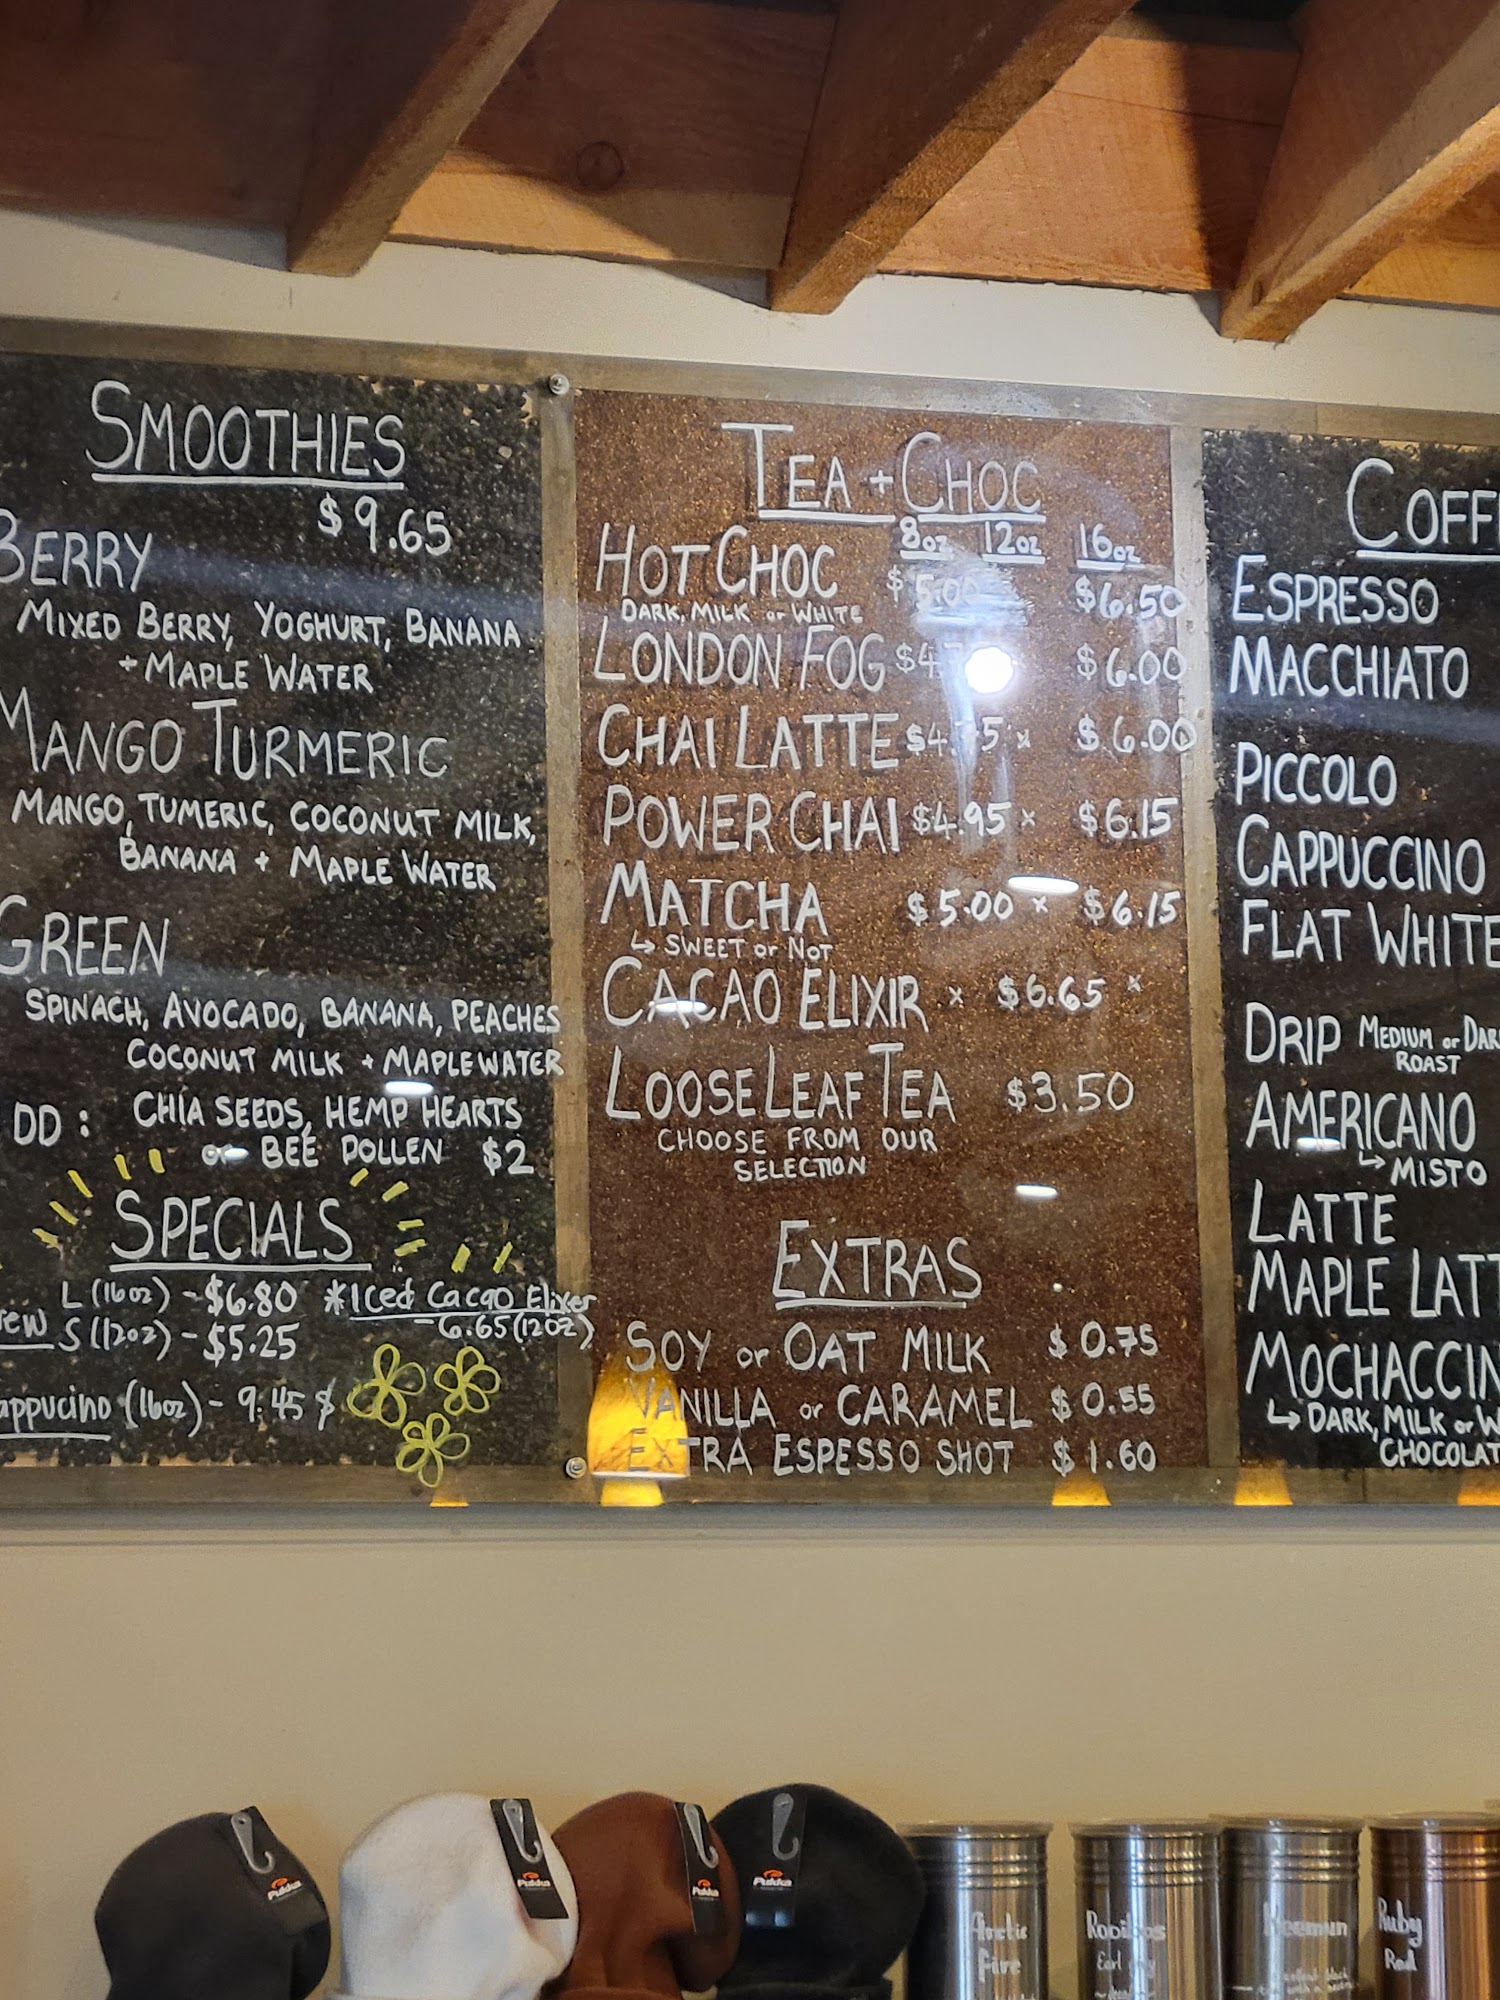 SMOOTHIES
$9.65
BERRY
MIXED BERRY, YOGHURT, BANANA
+ MAPLE WATER
MANGO TURMERIC
MANGO, TUMERIC, COCONUT MILK,
BANANA + MAPLE WATER
GREEN
SPINACH, AVOCADO, BANANA, PEACHES
COCONUT MILK + MAPLEWATER
DD : CHIA SEEDS, HEMP HEARTS
or BEE POLLEN $2
SPECIALS
L (16oz) - $6.80
S (12oz) - $5.25
*Iced Cacao Elixer
- 6.65 (12OZ)
appucino (16oz) - 9.45 $
TEA + CHOC
8oz 12oz 16oz
HOT CHOC $5.00 $6.50
DARK, MILK or WHITE
LONDON FOG $4 $6.00
CHAI LATTE $4.75 x $6.00
POWER CHAI $4.95 x $6.15
MATCHA $5.00 x $6.15
↳ SWEET or NOT
CACAO ELIXIR x $6.65 x
LOOSE LEAF TEA $3.50
CHOOSE FROM OUR
SELECTION
EXTRAS
SOY or OAT MILK $0.75
VANILLA or CARAMEL $0.55
EXTRA ESPESSO SHOT $1.60
COFF
ESPRESSO
MACCHIATO
PICCOLO
CAPPUCCINO
FLAT WHITE
DRIP MEDIUM or DAR
ROAST
AMERICANO
↳ MISTO
LATTE
MAPLE LATT
MOCHACCIN
↳ DARK, MILK or W
CHOCOLAT
Pukka
Pukka
Pukka
Pukka
Arctic
fire
Rooibos
Earl Grey
Keemun
Ruby
Red